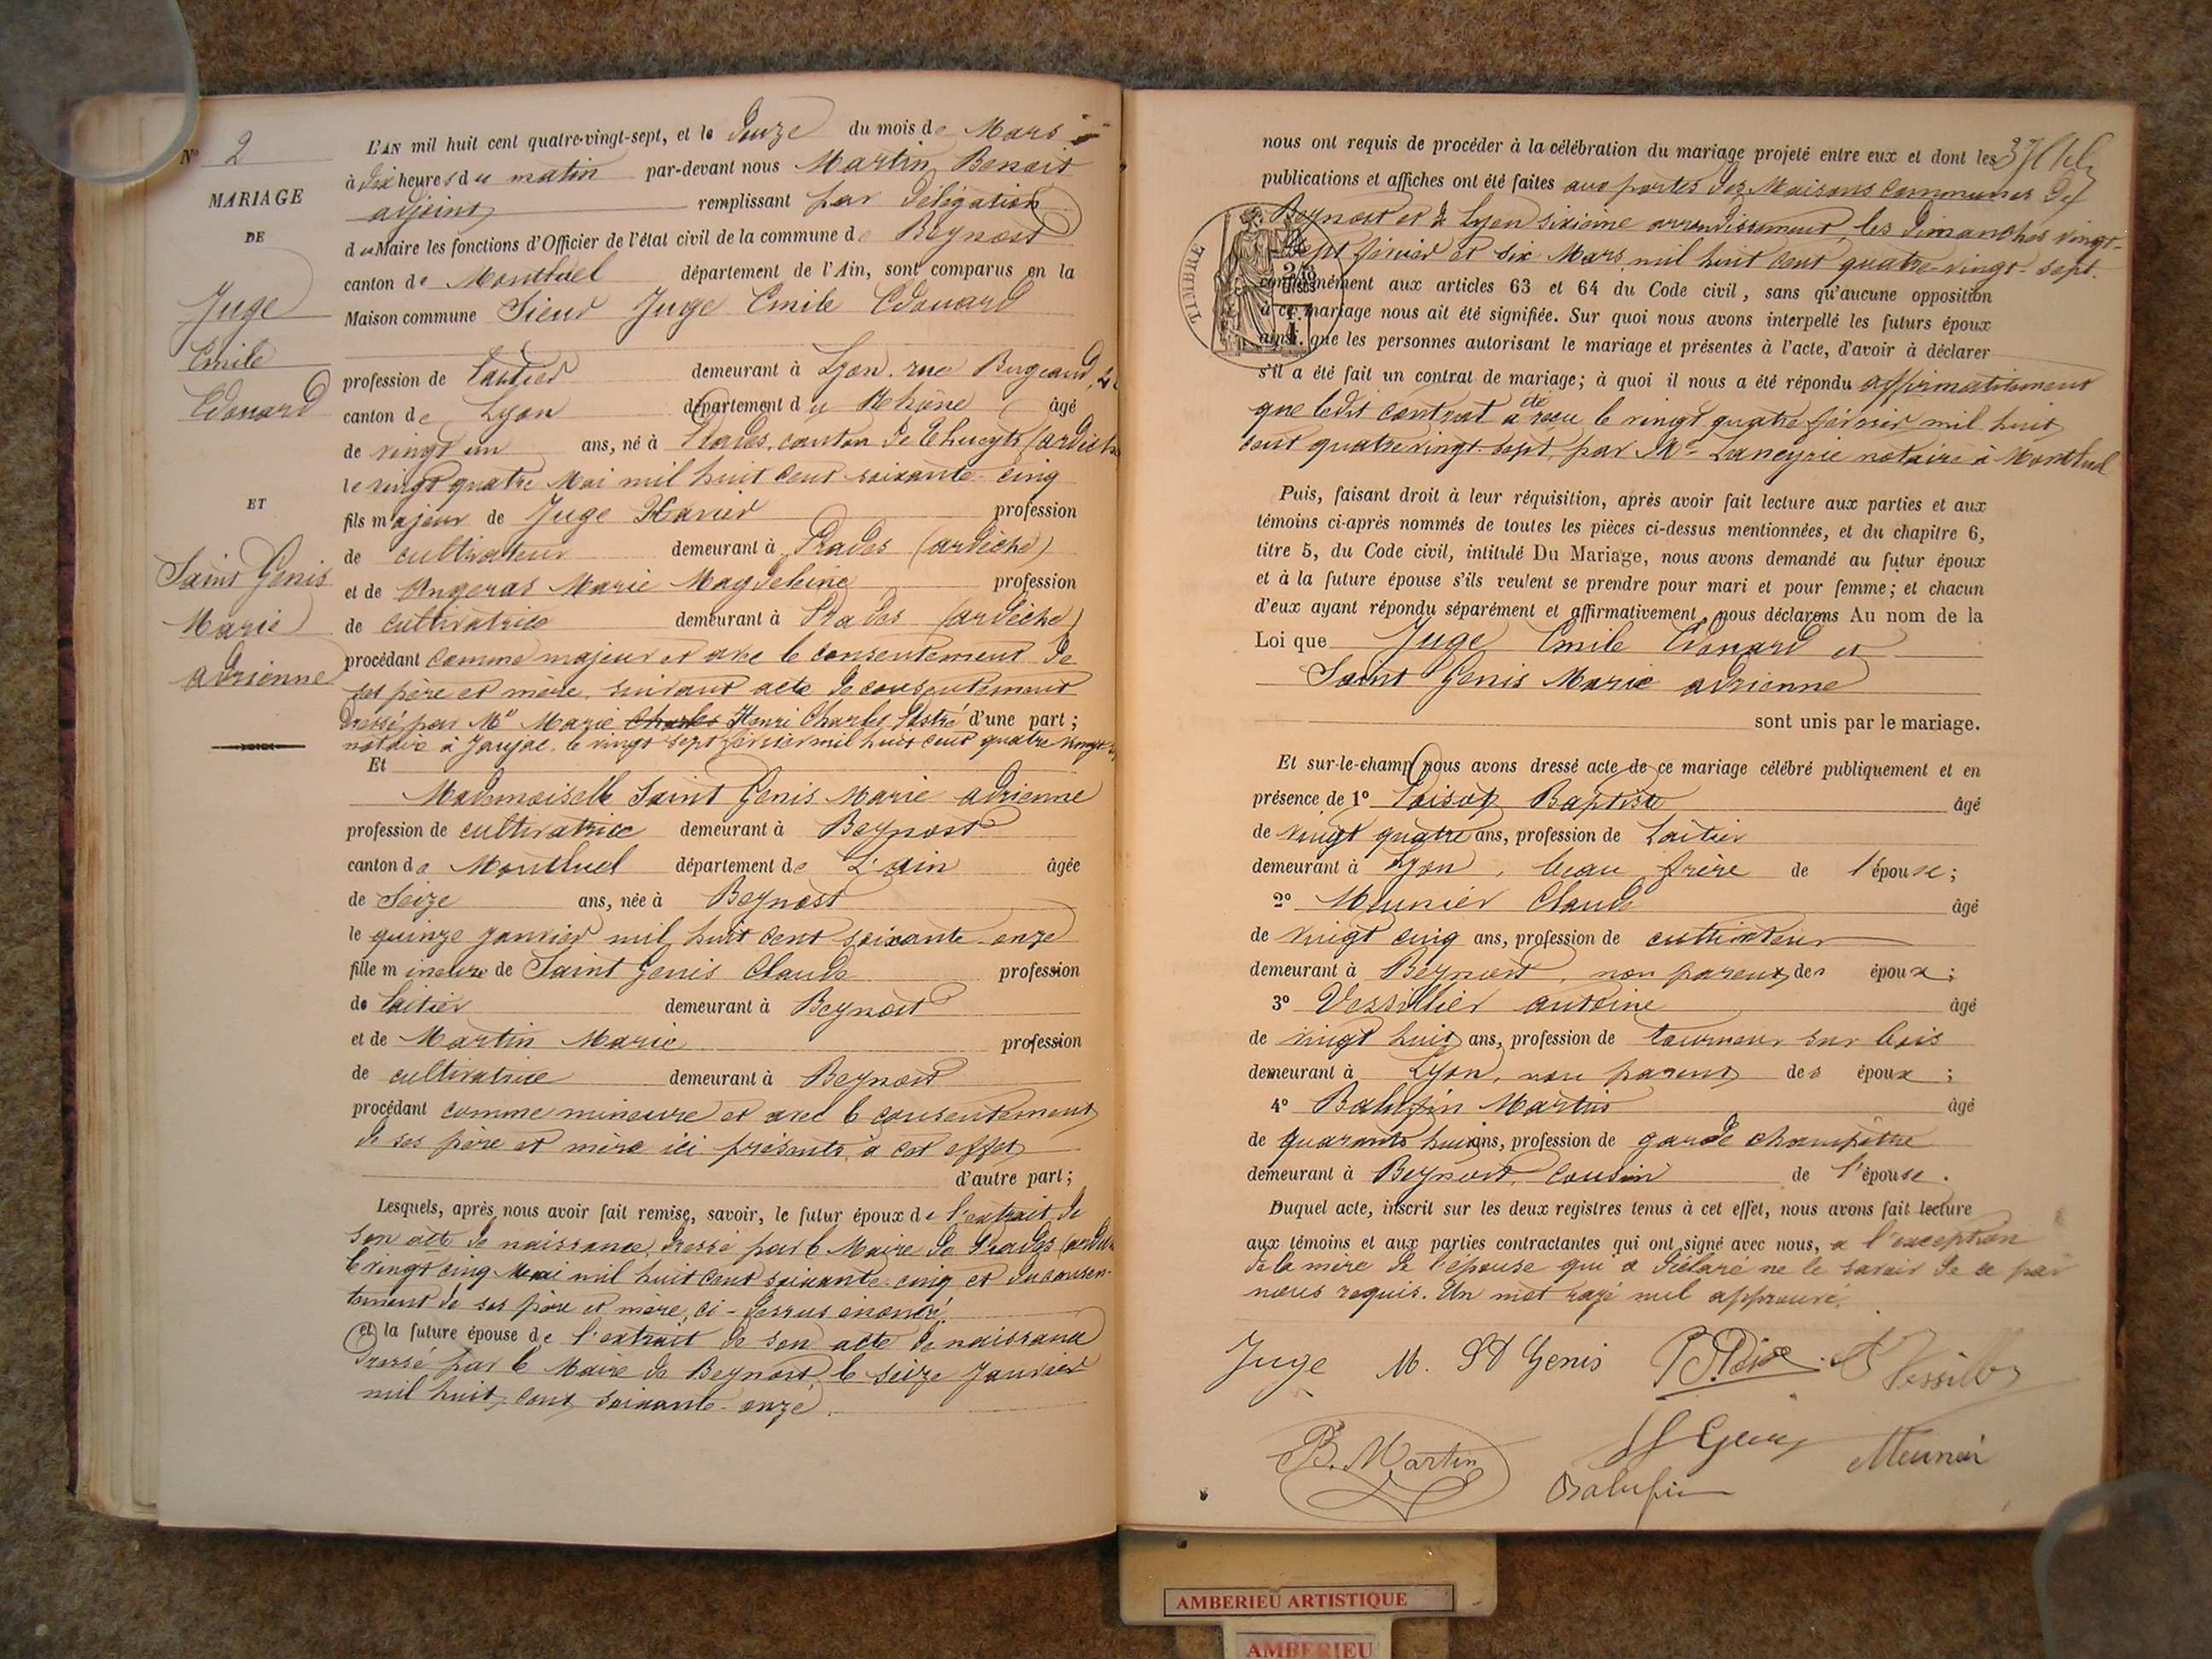 N° 2
MARIAGE
DE
Juge
Emile
Edouard
ET
Saint Genis
Marie
Adrienne
L'AN mil huit cent quatre-vingt-sept, et le Douze du mois de Mars
à dix heures du matin par-devant nous Martin Benoit
adjoint remplissant par délégation
du Maire les fonctions d'Officier de l'état civil de la commune de Beynost
canton de Montluel département de l'Ain, sont comparus en la
Maison commune Sieur Juge Emile Edouard
profession de laitier demeurant à Lyon, rue Bugeaud,
canton de Lyon département du Rhône âgé
de vingt un ans, né à Prades, canton de Thueyts (ardèche
le vingt quatre Mai mil huit cent soixante-cinq
fils majeur de Juge Xavier profession
de cultivateur demeurant à Prades (ardèche)
et de Angeras Marie Magdeleine profession
de cultivatrice demeurant à Prades (ardèche)
procédant comme majeur et avec le consentement de
ses père et mère, suivant acte de consentement
dressé par Me Marie Charles Henri Charles d'une part;
notaire à Jaujac, le vingt sept février mil huit cent quatre vingt
Et
Mademoiselle Saint Genis Marie Adrienne
profession de cultivatrice demeurant à Beynost
canton de Montluel département de L'ain âgée
de Seize ans, née à Beynost
le quinze janvier mil huit cent soixante-onze
fille mineure de Saint Genis Claude profession
de laitier demeurant à Beynost
et de Martin Marie profession
de cultivatrice demeurant à Beynost
procédant comme mineure et avec le consentement
de ses père et mère ici présents à cet effet
d'autre part;
Lesquels, après nous avoir fait remise, savoir, le futur époux de l'extrait de
son acte de naissance, dressé par le Maire de Prades
le vingt cinq Mai mil huit cent soixante-cinq et du consen-
tement de ses père et mère, ci-dessus énoncé.
et la future épouse de l'extrait de son acte de naissance
dressé par le Maire de Beynost le seize janvier
mil huit cent soixante-onze.
nous ont requis de procéder à la célébration du mariage projeté entre eux et dont les
publications et affiches ont été faites aux portes des Maisons Communes de
Beynost et de Lyon sixième arrondissement, les dimanches vingt-
sept février et six Mars mil huit cent quatre-vingt-sept.
TIMBRE
conformément aux articles 63 et 64 du Code civil, sans qu'aucune opposition
à ce mariage nous ait été signifiée. Sur quoi nous avons interpellé les futurs époux
ainsi que les personnes autorisant le mariage et présentes à l'acte, d'avoir à déclarer
s'il a été fait un contrat de mariage; à quoi il nous a été répondu affirmativement
que ledit contrat a été reçu le vingt quatre février mil huit
cent quatre vingt-sept, par Me Laneyrie notaire à Montluel
Puis, faisant droit à leur réquisition, après avoir fait lecture aux parties et aux
témoins ci-après nommés de toutes les pièces ci-dessus mentionnées, et du chapitre 6,
titre 5, du Code civil, intitulé Du Mariage, nous avons demandé au futur époux
et à la future épouse s'ils veulent se prendre pour mari et pour femme; et chacun
d'eux ayant répondu séparément et affirmativement, nous déclarons Au nom de la
Loi que Juge Emile Edouard et
Saint Genis Marie Adrienne
sont unis par le mariage.
Et sur-le-champ nous avons dressé acte de ce mariage célébré publiquement et en
présence de 1° Baptiste âgé
de vingt quatre ans, profession de Laitier
demeurant à Lyon, beau frère de l'épouse;
2° Meunier Claude âgé
de vingt cinq ans, profession de cultivateur
demeurant à Beynost, non parent des époux;
3° Vessillier Antoine âgé
de vingt huit ans, profession de tourneur sur bois
demeurant à Lyon, non parent des époux;
4° Balufin Martin âgé
de quarante huit ans, profession de garde champêtre
demeurant à Beynost, cousin de l'épouse.
Duquel acte, inscrit sur les deux registres tenus à cet effet, nous avons fait lecture
aux témoins et aux parties contractantes qui ont signé avec nous, à l'exception
de la mère de l'épouse qui a déclaré ne le savoir de ce par
nous requis. Un mot rayé nul approuvé.
Juge M. St Genis
B. Martin St Genis Meunier
Balufin
AMBERIEU ARTISTIQUE
AMBERIEU